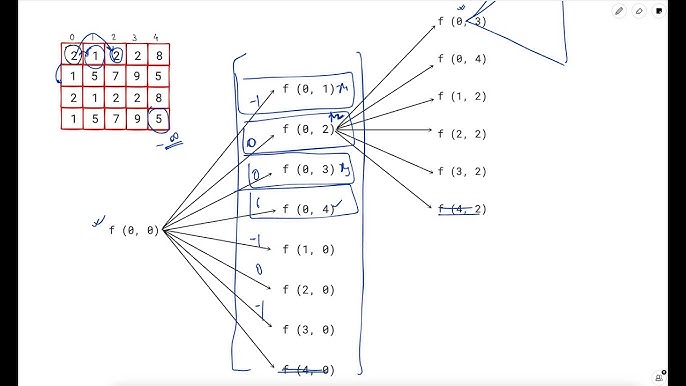 0 1 2 3 4
2 1 2 2 8
1 5 7 9 5
2 1 2 2 8
1 5 7 9 5
-∞
f (0, 0)
-1 f (0, 1)
0 f (0, 2)
0 f (0, 3)
f (0, 4)
-1 f (1, 0)
0 f (2, 0)
-1 f (3, 0)
f (4, 0)
f (0, 3)
f (0, 4)
f (1, 2)
f (2, 2)
f (3, 2)
f (4, 2)